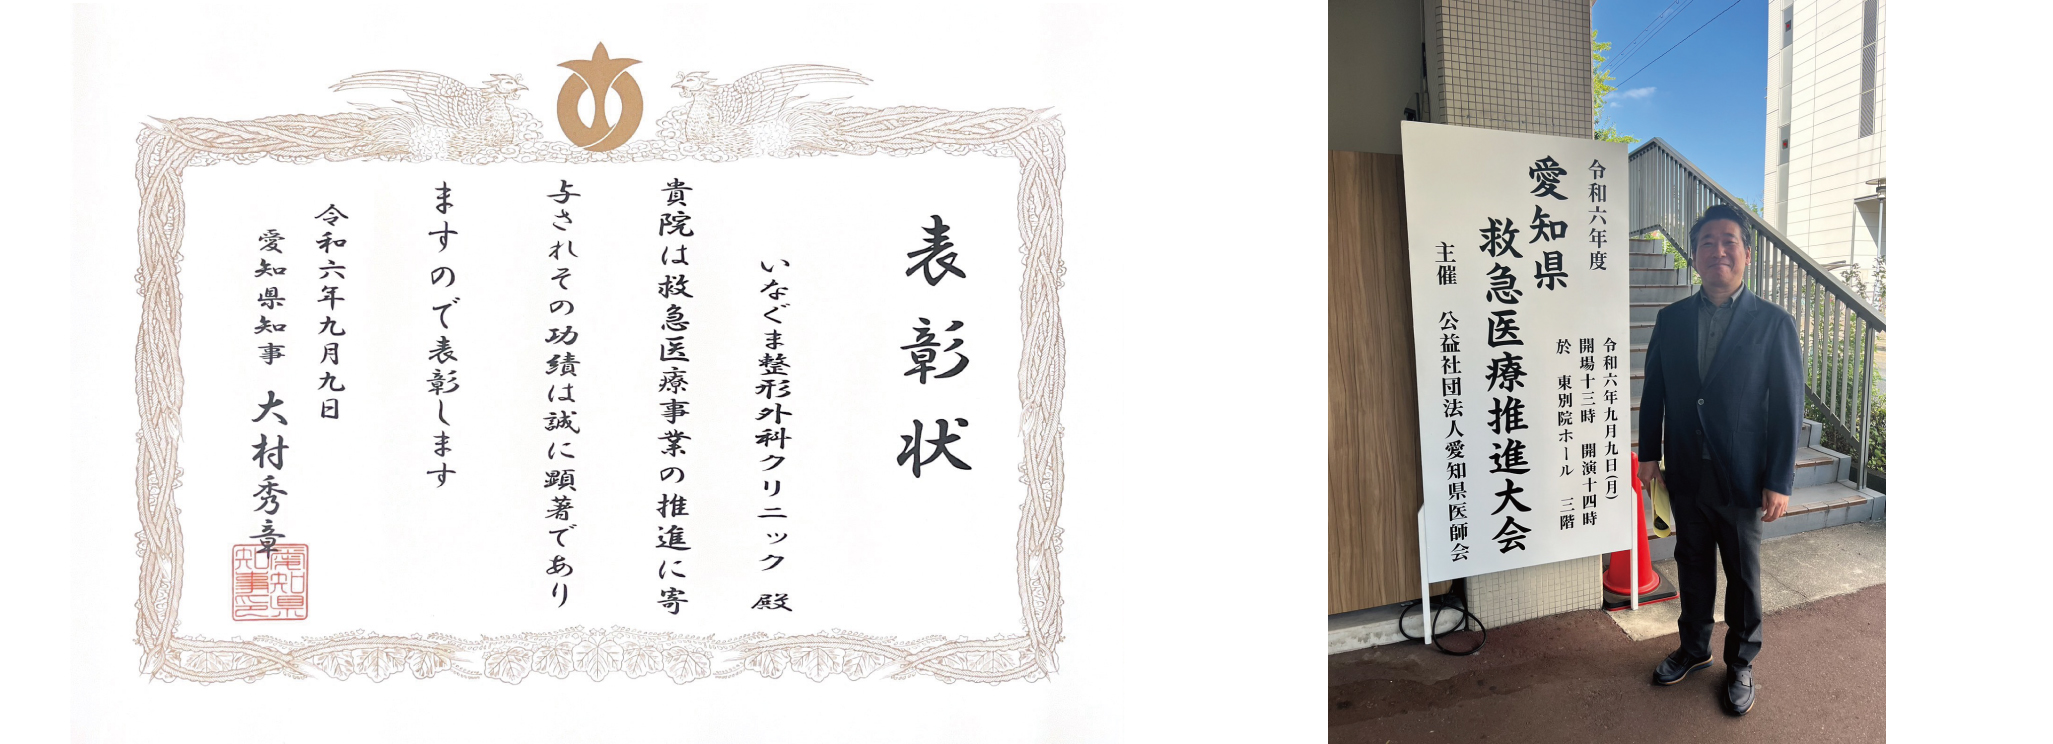 表彰状
いなぐま整形外科クリニック 殿
貴院は救急医療事業の推進に寄
与されその功績は誠に顕著であり
ますので表彰します
令和六年九月九日
愛知県知事 大村秀章
愛知県
知事印
令和六年度
愛知県
救急医療推進大会
令和六年九月九日(月)
開場十三時 開演十四時
於 東別院ホール 三階
主催 公益社団法人愛知県医師会